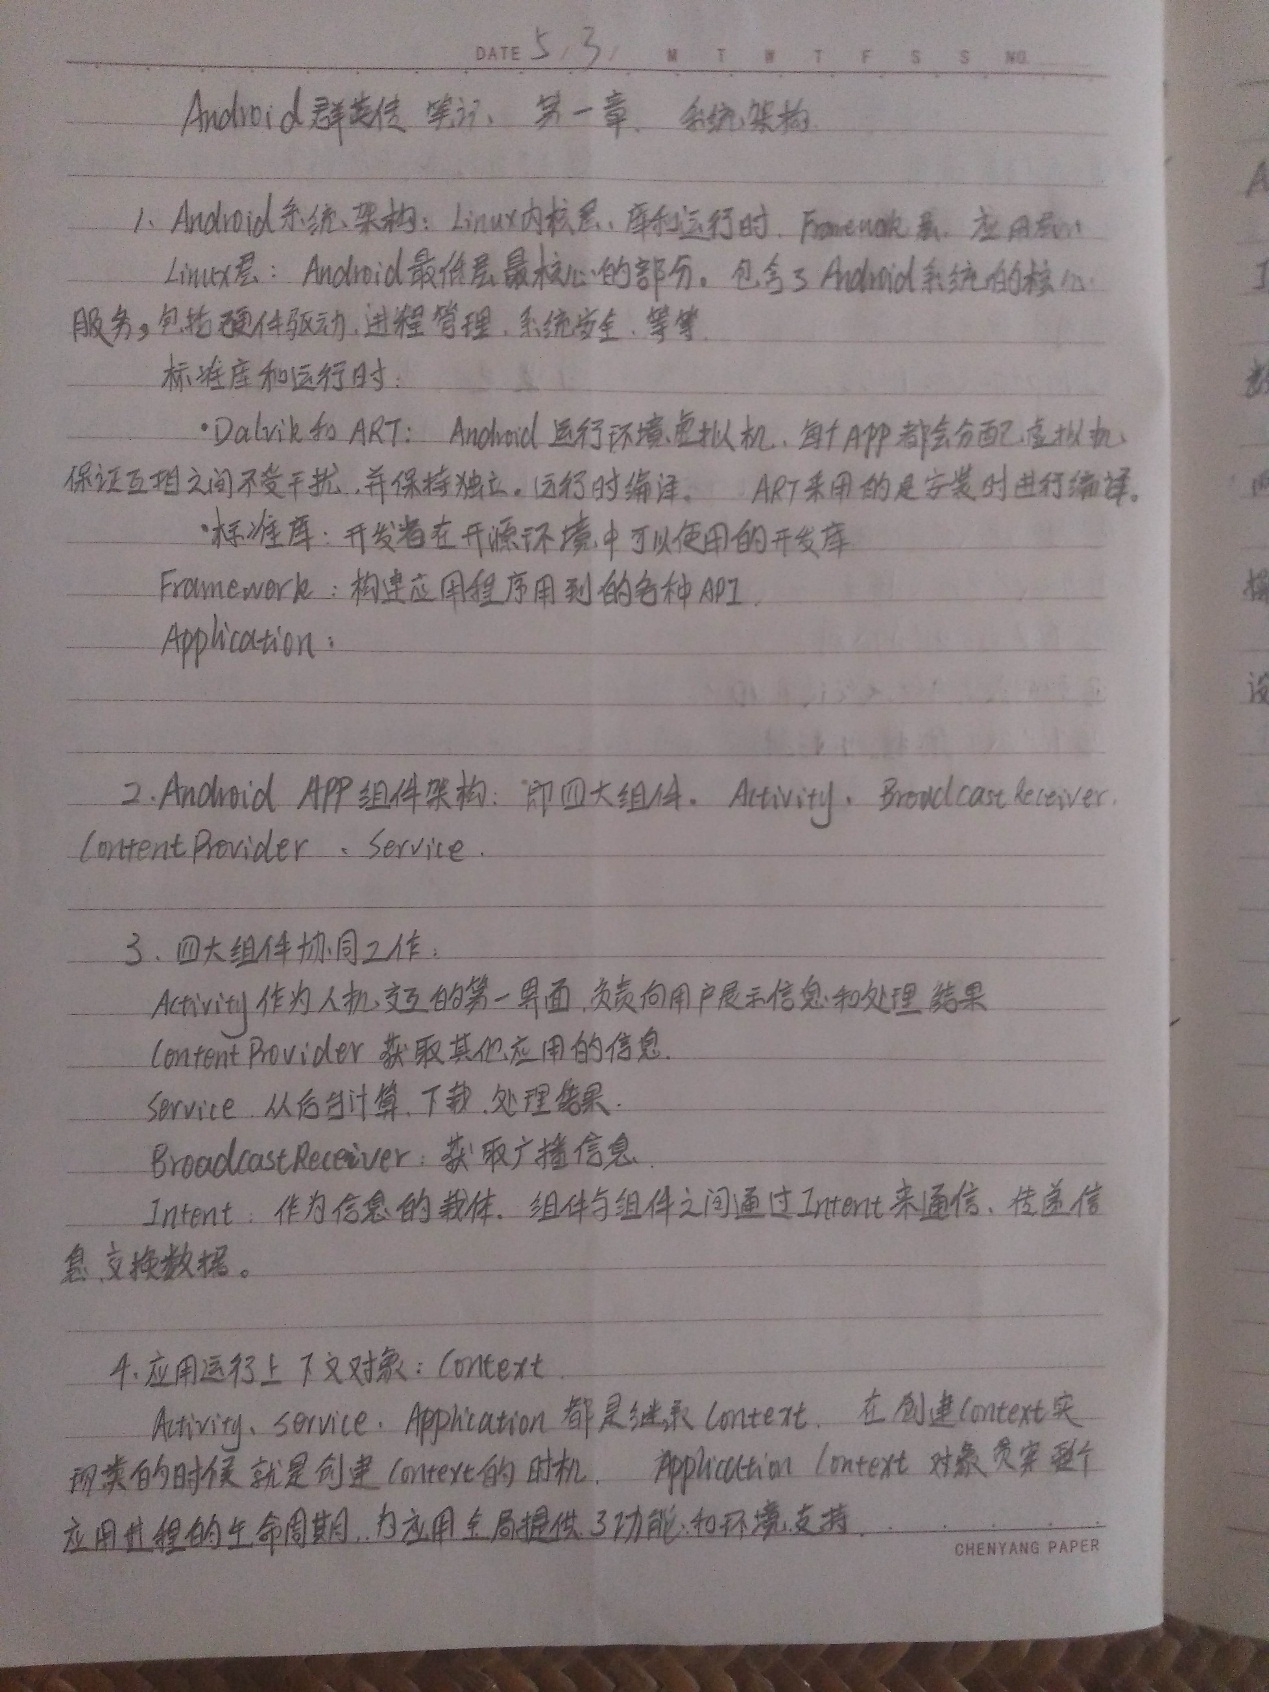 DATE 5/3/ M T W T F S S NO.
Android群英传 笔记、第一章、系统架构.
1、Android系统架构：Linux内核层、库和运行时、Framework层、应用层
Linux层：Android最低层最核心的部分。包含了Android系统的核心
服务，包括硬件驱动、进程管理、系统安全、等等.
标准库和运行时：
·Dalvik和ART： Android运行环境虚拟机、每个APP都会分配虚拟机，
保证互相之间不受干扰，并保持独立。运行时编译。 ART采用的是安装时进行编译。
·标准库：开发者在开源环境中可以使用的开发库
Framework：构建应用程序用到的各种API.
Application：
2.Android APP组件架构：即四大组件。Activity、BroadcastReceiver、
ContentProvider 、Service.
3、四大组件协同工作：
Activity作为人机交互的第一界面，负责向用户展示信息和处理结果
ContentProvider 获取其他应用的信息.
Service 从后台计算、下载、处理结果.
BroadcastReceiver：获取广播信息.
Intent：作为信息的载体、组件与组件之间通过Intent来通信、传递信
息、交换数据。
4.应用运行上下文对象：Context.
Activity、Service、Application都是继承Context. 在创建Context实
现类的时候就是创建Context的时机. Application Context对象贯穿整个
应用进程的生命周期，为应用全局提供了功能和环境支持.
CHENYANG PAPER